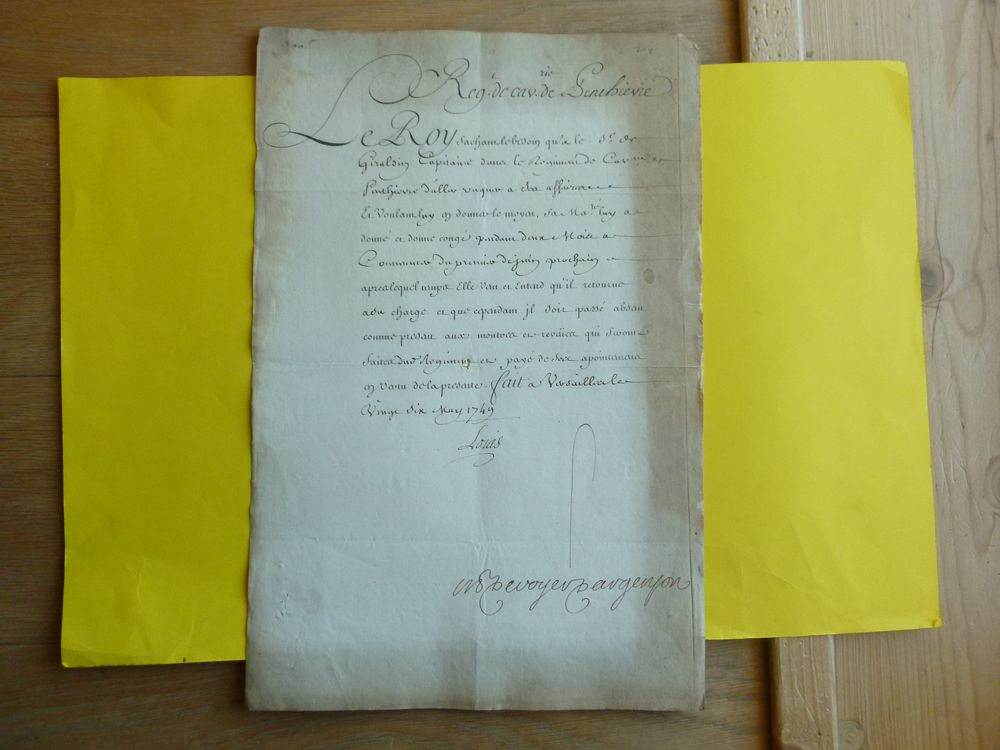 Reg.t de cav.rie de Penthievre
Le Roy sachant le besoin qu'a le S.r de
Giraldin Capitaine dans le Regiment de Cav.rie de
Penthievre d'aller vaquer a ses affaires
Et Voulant luy en donner le moyen, Sa Ma.té luy a
donné et donne congé pendant deux Mois a
Commencer du premier de juin prochain
apres lequel temps Elle veut et Entend qu'il retourne
a sa charge et que cependant jl soit passé absent
comme present aux montres et reveües qui seront
faites dud. Regiment et payé de ses apointemens
en vertu de la presente. fait a Versailles le
Vingt six May 1749
Louis
M. P. de voyer d'argenson